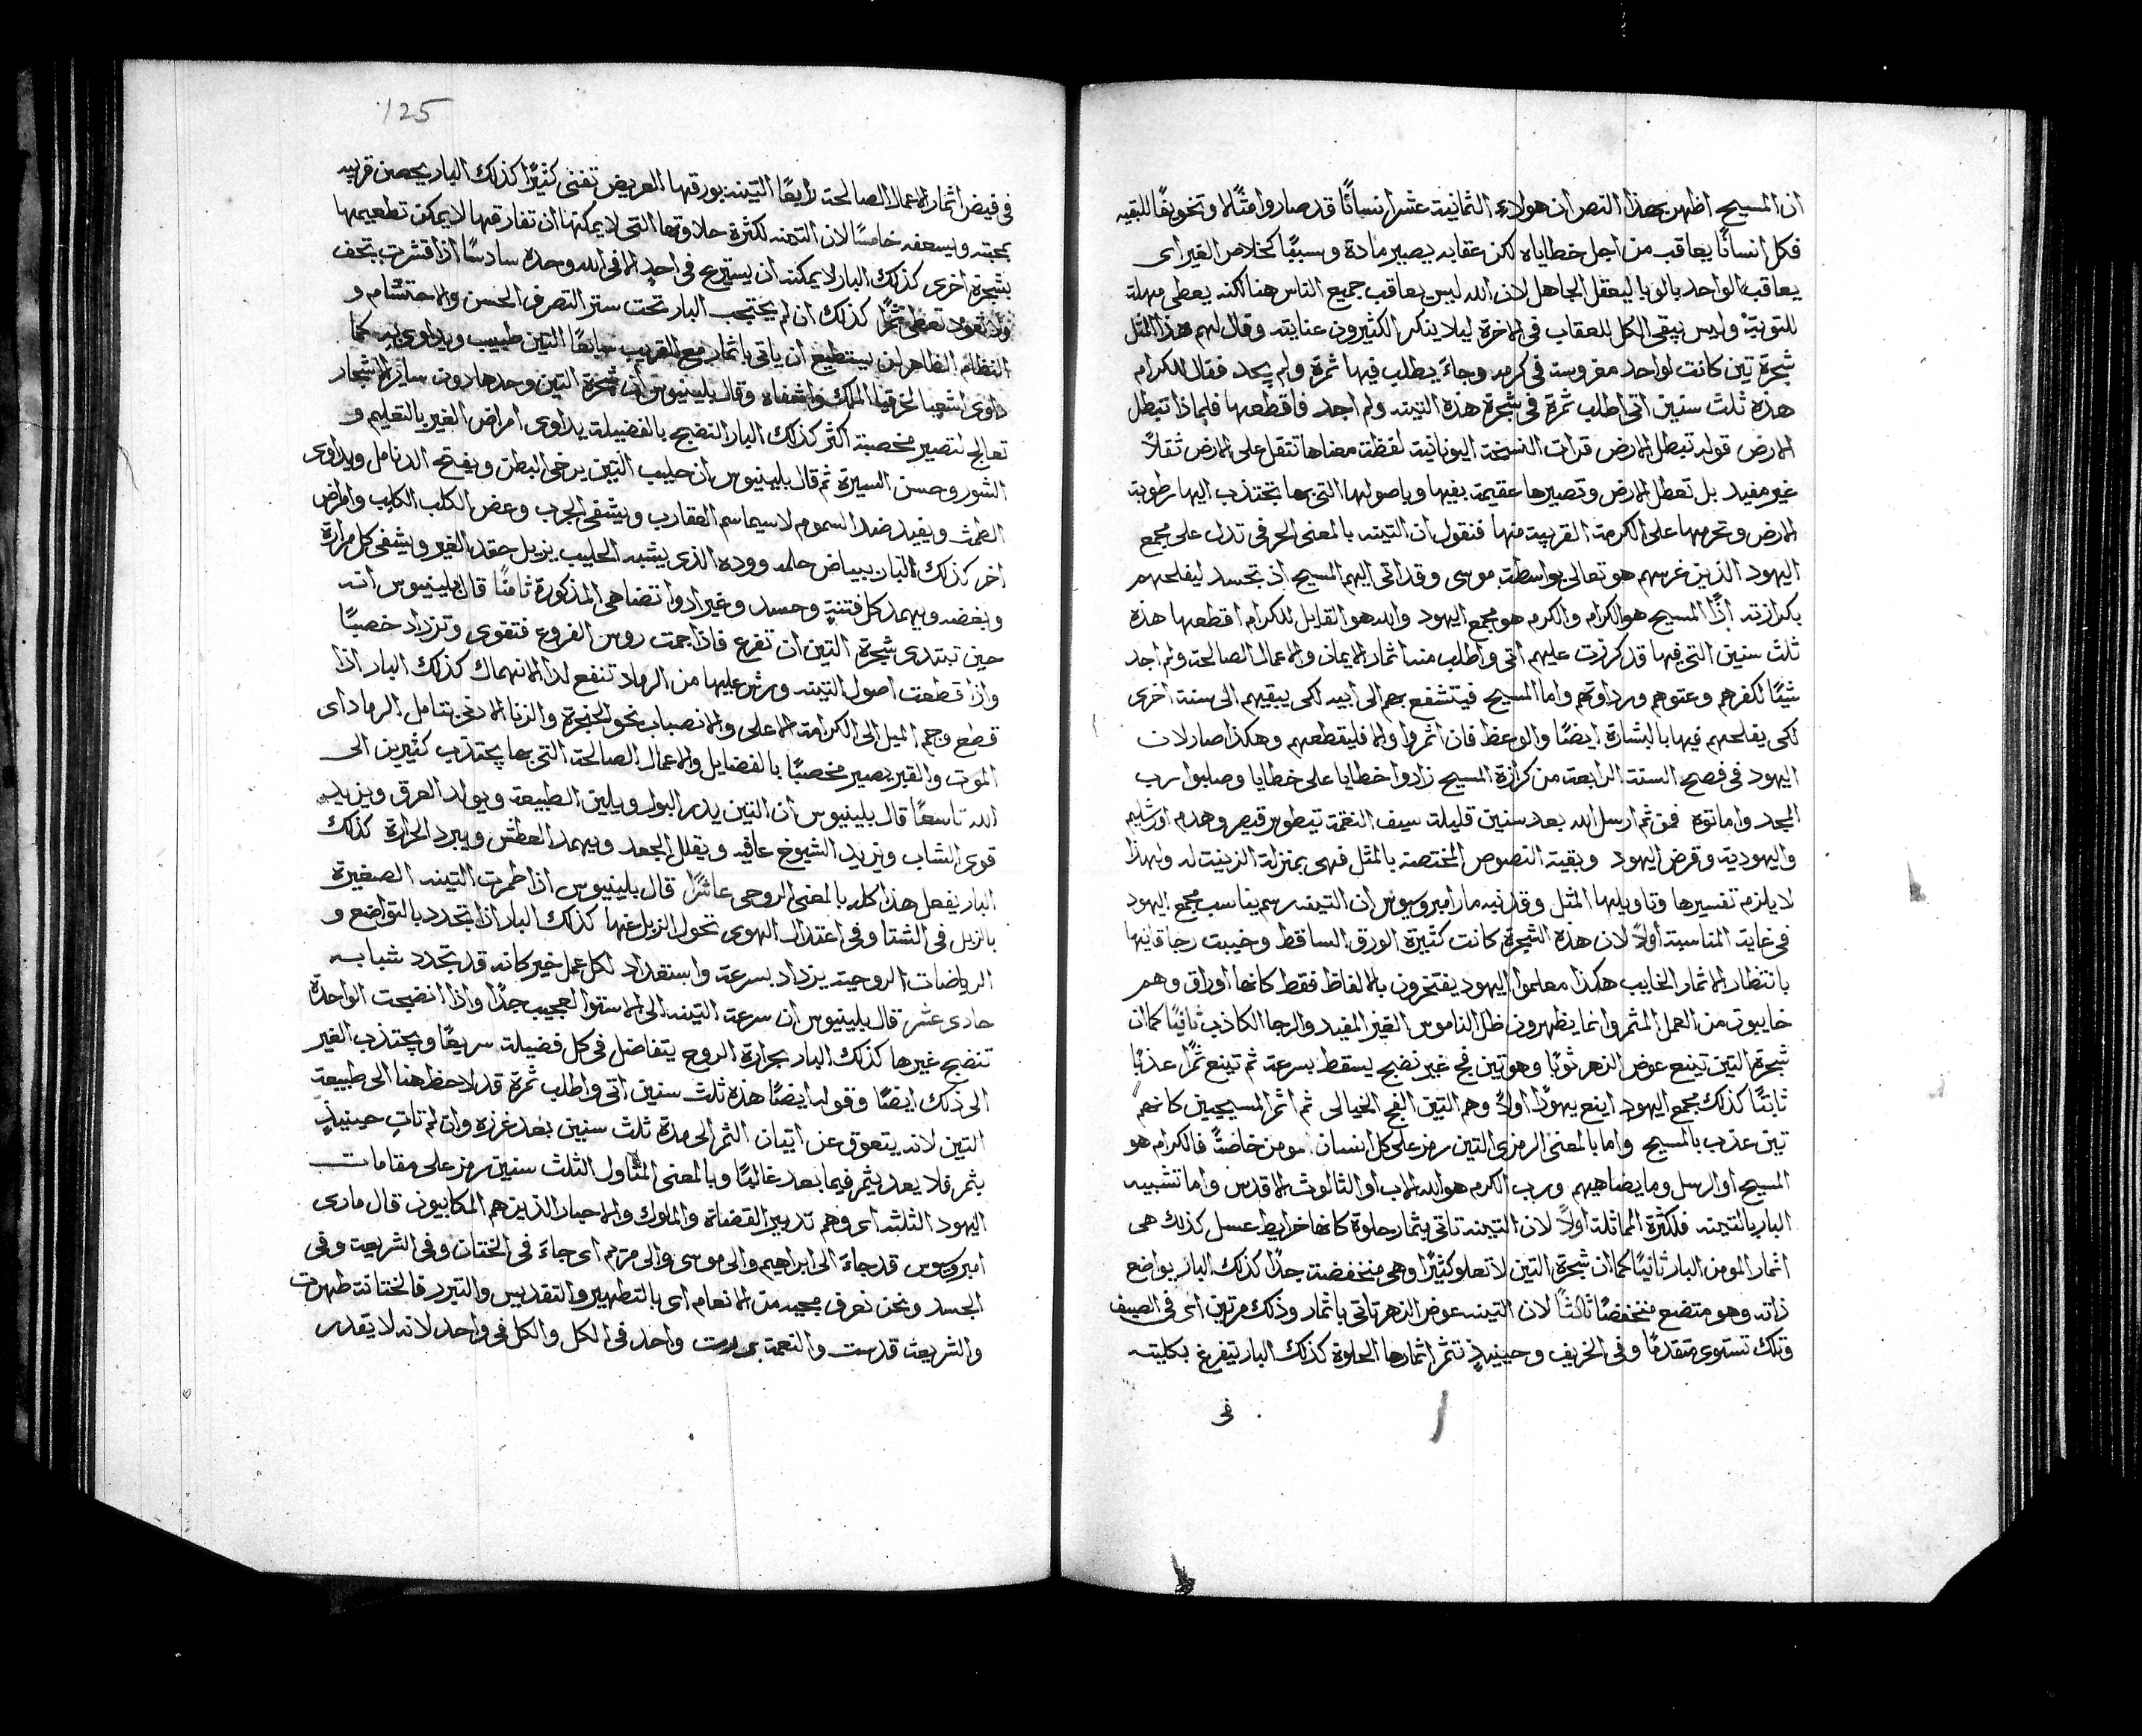 ان المسيح اظهر بهذا النص ان هولاء الثمانية عشر انسانًا قد صاروا مثلًا وتخويفًا للبقيه
فكل انسانًا يعاقب من اجل خطاياه لكن عقابه يصير مادة وسببًا لخلاص الغير اى
يعاقب الواحد بالوبا ليعقل الجاهل لان الله ليس يعاقب جميع الناس هنا لكنه يعطى مهلة
للتوبة وليس يبقى الكل للعقاب فى الاخرة ليلا ينكر الكثيرون عنايته وقال لهم هذا المثل
شجرة تين كانت لواحد مغروسة فى كرمه وجاءَ يطلب فيها ثمرة ولم يجد فقال للكرام
هذه ثلث سنين اتى اطلب ثمرة فى شجرة هذه التينه ولم اجد فاقطعها فلماذا تبطل
الارض قوله تبطل الارض قرات النسخة اليونانية لفظة معناها تتقل على الارض ثقلاً
غير مفيد بل تعطل الارض وتصيرها عقيمة بفيها وباصولها التى بها تجتذب اليها رطوبة
الارض وتحرمها على الكرمة القريبة منها فنقول ان التينه بالمعنى الحرفى تدل على مجمع
اليهود الذين غرسهم هو تعالى بواسطة موسى وقد اتى اليهم المسيح اذ تجسد ليفلحهم
بكرازته اذًا المسيح هو الكرام والكرم هو مجمع اليهود والله هو القايل للكرام اقطعها هذه
ثلث سنين التى فيها قد كرزت عليهم اتى واطلب منها اثمار الايمان والاعمال الصالحة ولم اجد
شيئًا لكفرهم وعتوهم ورداوتهم واما المسيح فيتشفع بهم الى ابيه لكى يبقيهم الى سنة اخرى
لكى يفلحهم فيها بالبشارة ايضًا والوعظ فان اثمروا والا فليقطعهم وهكذا صار لان
اليهود فى فصح السنة الرابعة من كرازة المسيح زادوا خطايا على خطايا وصلبوا رب
المجد واماتوه فمن ثم ارسل الله بعد سنين قليلة سيف النقمة تيطوس قيصر وهدم اورشليم
واليهودية وقرض اليهود وبقية النصوص المختصة بالمثل فهى بمنزلة الزينة له ولهذا
لا يلزم تفسيرها وتاويلها المثل وقد نبه مار امبروسيوس ان التينه رسم يناسب مجمع اليهود
فى غاية المناسبة اولاً لان هذه الشجرة كانت كثيرة الورق الساقط وخيبت رجا قانيها
بانتظار الاثمار الخايب هكذا معلموا اليهود يفتخرون بالالفاظ فقط كانها اوراق وهم
خايبون من العمل المثمر وانما يظهرون ظل الناموس الغير المفيد والرجا الكاذب ثانيًا كما ان
شجرة التين تينع عوض الزهر ثوبًا وهو تين فج غير نضج يسقط بسرعة ثم تينع ثمرًا عذبًا
ثابتًا كذلك مجمع اليهود اينع يهودًا اولاً وهم التين الفج الخيالى ثم اثمر المسيحيين كانهم
تين عذب بالمسيح واما بالمعنى الرمزى التين رمز على كل انسان مومن خاصةً فالكرام هو
المسيح او الرسل وما يضاهيهم ورب الكرم هو الله الاب او الثالوث الاقدس واما تشبيه
البار بالتينه فلكثرة المماثلة اولاً لان التينه تاتى بثمار حلوة كانها خرايط عسل كذلك هى
اثمار المومن البار ثانيًا كما ان شجرة التين لا تعلو كثيرًا وهى منخفضة جدًا كذلك البار يواضع
ذاته وهو متضع منخفضًا ثالثًا لان التينه عوض الزهر تاتى باثمار وذلك مرتين اى فى الصيف
وتلك تستوى متقدمًا وفى الخريف وحينيذٍ تثمر اثمارها الحلوة كذلك البار يتفرغ بكليته
فى
125
فى فيض اثمار الاعمال الصالحة رابعًا التينه بورقها العريض تفئى كثيرًا كذلك البار يحصن قريبه
بمحبته ويسعفه خامسًا لان التينه لكثرة حلاوتها التى لا يمكنها ان تفارقها لا يمكن تطعيمها
بشجرة اخرى كذلك البار لا يمكنه ان يستريح فى احدٍ الا فى الله وحده سادسًا اذا قشرت تجف
ولا تعود تعطى ثمرًا كذلك ان لم يحتجب البار تحت ستر التصرف الحسن والاحتشام و
النظام الظاهر لن يستطيع ان ياتى باثمار مع القريب سابعًا التين طبيب ويداوى به كما
داوى اشعيا لحزقيا الملك واشفاه وقال بلينيوس ان شجرة التين وحدها دون ساير الاشجار
تعالج لتصير مخصبة اكثر كذلك البار النضج بالفضيلة يداوى امراض الغير بالتعليم و
الشور وحسن السيرة ثم قال بلينيوس ان حليب التين يرخى البطن ويفتح الدنامل ويداوى
الطمث ويفيد ضد السموم لا سيما سم العقارب ويشفى الجرب وعض الكلب الكلب وامراض
اخر كذلك البار ببياض حلمه ووده الذى يشبه الحليب يزيل حقد الغير ويشفى كل مرارة
وبغضه ويهمد كل فتنةٍ وحسد وغير ادوا تضاهى المذكورة ثامنًا قال بلينيوس انه
حين تبتدى شجرة التين ان تفرع فاذا جمت روس الفروع فتقوى وتزداد خصبًا
واذا قطعت اصول التينه ورش عليها من الرماد تنفع لذا الانهماك كذلك البار اذا
قطع وجم الميل الى الكرامة الاعلى والانصباب نحو الحنجرة والزنا الادنى بتامل الرماد اى
الموت والقبر يصير مخصبًا بالفضايل والاعمال الصالحة التى بها يجتذب كثيرين الى
الله تاسعًا قال بلينيوس ان التين يدر البول ويلين الطبيعة ويولد العرق ويزيد
قوى الشاب ويزيد الشيوخ عافيه ويقلل الجعد ويهمد العطش ويبرد الحرارة كذلك
البار يفعل هذا كله بالمعنى الروحى عاشرًا قال بلينيوس اذا طمرت التينه الصغيرة
بالزبل فى الشتا وفى اعتدال الهوى تحول الزبل عنها كذلك البار اذا تجدد بالتواضع و
الرياضات الروحية يزداد بسرعة واستعداد لكل عمل خير كانه قد تجدد شبابه
حادى عشر قال بلينيوس ان سرعة التينه الى الاستوا العجيب جدًا واذا انضجت الواحدة
تنضج غيرها كذلك البار بحرارة الروح يتفاضل فى كل فضيلة سريعًا ويجتذب الغير
الى ذلك ايضًا وقوله ايضًا هذه ثلث سنين اتى واطلب ثمرة قد لاحظ هنا الى طبيعة
التين لانه يتعوق عن اتيان الثمر الى مدة ثلث سنين بعد غرزه وان لم تاتِ حينيذٍ
بثمر فلا يعد يثمر فيما بعد غالبًا وبالمعنى المتاول الثلث سنين رمز على مقامات
اليهود الثلثه اى وهم تدبير القضاة والملوك والاحبار الذين هم المكابيون قال مارى
امبروسيوس قد جاءَ الى ابراهيم والى موسى والى مريم اى جاءَ فى الختان وفى الشريعة وفى
الجسد ونحن نعرف مجيه من الانعام اى بالتطهير والتقديس والتبرر فالختانة طهرت
والشريعة قدست والنعمة بررت واحد فى الكل والكل فى واحد لانه لا يقدر